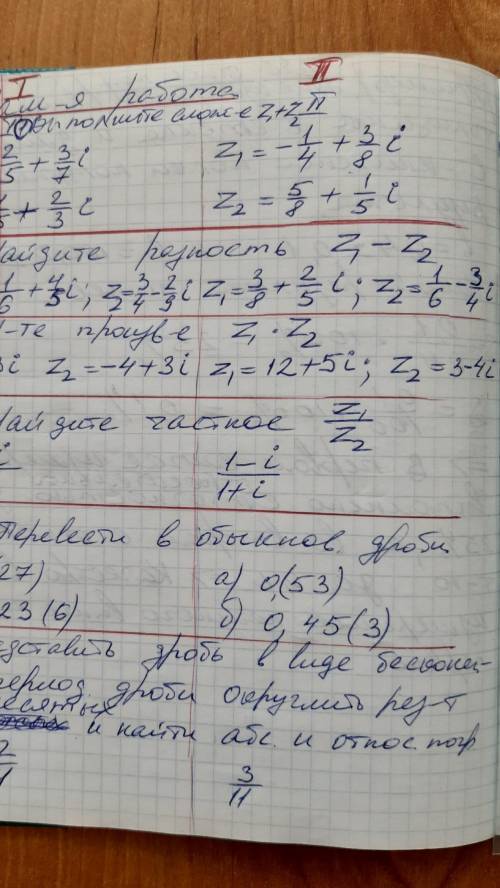 I II
работа
Выполните сложе z₁+z₂
2/5 + 3/7 i z₁ = -1/4 + 3/8 i
+ 2/3 i z₂ = 5/8 + 1/5 i
найдите разность z₁ - z₂
1/6 + 4/5 i; z₂=3/4-2/9 i z₁=3/8+2/5 i; z₂=1/6-3/4 i
-те произв-е z₁ · z₂
3i z₂=-4+3i z₁=12+5i; z₂=3-4i
найдите частное z₁/z₂
i (1-i)/(1+i)
Перевести в обыкнов. дроби
27) а) 0,(53)
23(6) б) 0,45(3)
едставить дробь в виде бесконеч-
период дроби округлить рез-т
десятых
и найти абс. и относ. погр
2/ 3/11